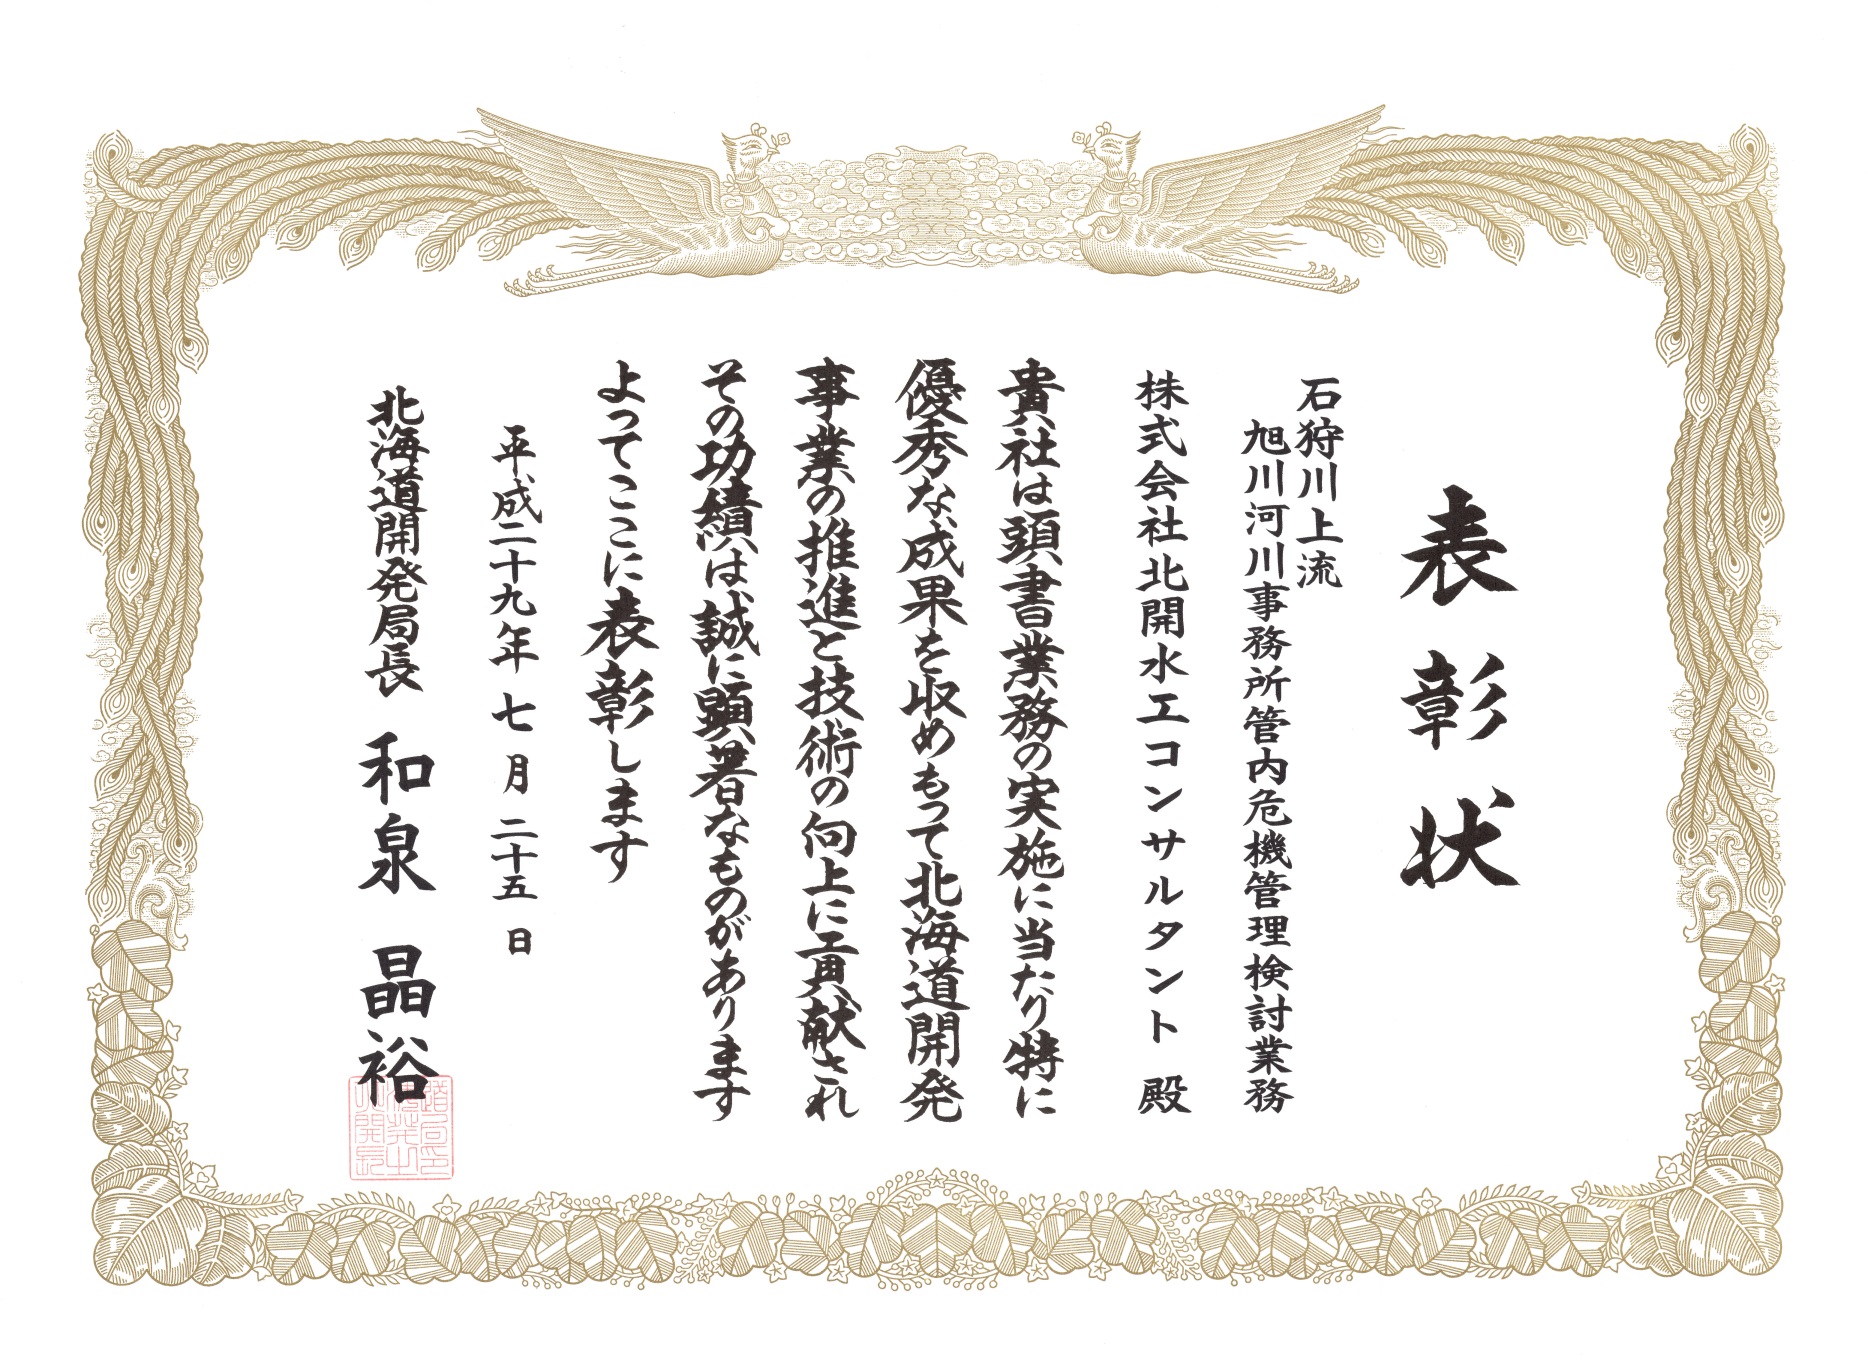 表彰状
石狩川上流
旭川河川事務所管内危機管理検討業務
株式会社北開水工コンサルタント 殿
貴社は頭書業務の実施に当たり特に
優秀な成果を収めもって北海道開発
事業の推進と技術の向上に貢献され
その功績は誠に顕著なものがあります
よってここに表彰します
平成二十九年 七月 二十五日
北海道開発局長 和泉 晶裕